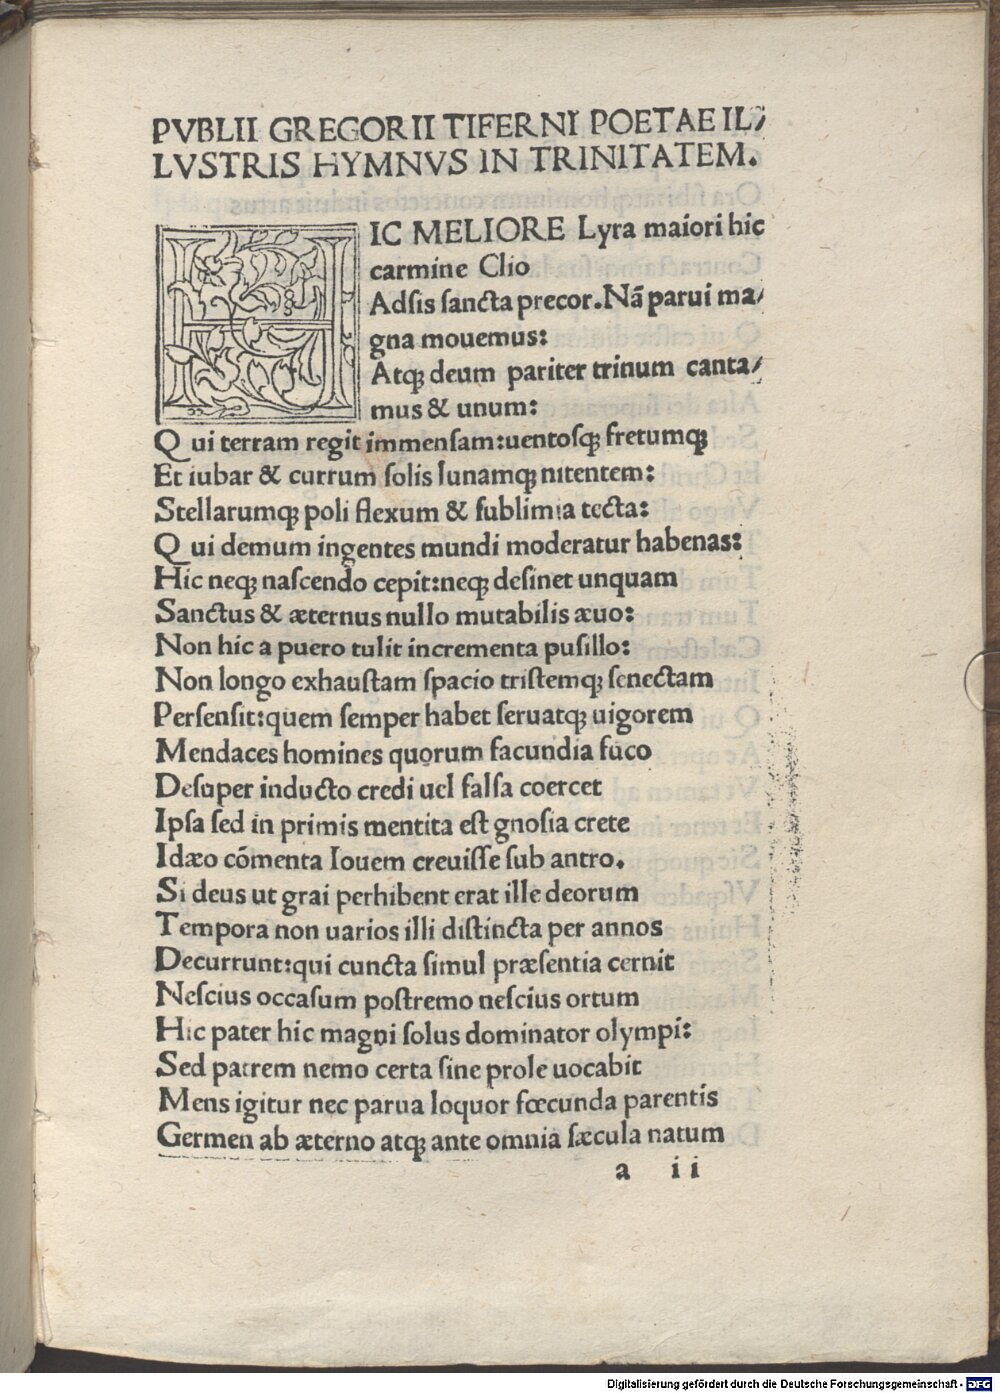 PVBLII GREGORII TIFERNI POETAE IL⸗
LVSTRIS HYMNVS IN TRINITATEM.
HIC MELIORE Lyra maiori hic
carmine Clio
Adſis ſancta precor. Nã parui ma⸗
gna mouemus:
Atqꝫ deum pariter trinum canta⸗
mus & unum:
Q ui terram regit immenſam:uentoſqꝫ fretumqꝫ
Et iubar & currum ſolis lunamqꝫ nitentem:
Stellarumqꝫ poli flexum & ſublimia tecta:
Q ui demum ingentes mundi moderatur habenas:
Hic neqꝫ naſcendo cepit:neqꝫ deſinet unquam
Sanctus & æternus nullo mutabilis æuo:
Non hic a puero tulit incrementa puſillo:
Non longo exhauſtam ſpacio triſtemqꝫ ſenectam
Perſenſit:quem ſemper habet ſeruatqꝫ uigorem
Mendaces homines quorum facundia fuco
Deſuper inducto credi uel falſa coercet
Ipſa ſed in primis mentita eſt gnoſia crete
Idæo cõmenta Iouem creuiſſe ſub antro.
Si deus ut grai perhibent erat ille deorum
Tempora non uarios illi diſtincta per annos
Decurrunt:qui cuncta ſimul præſentia cernit
Neſcius occaſum poſtremo neſcius ortum
Hic pater hic magni ſolus dominator olympi:
Sed patrem nemo certa ſine prole uocabit
Mens igitur nec parua loquor fœcunda parentis
Germen ab æterno atqꝫ ante omnia ſæcula natum
a ii
Digitalisierung gefördert durch die Deutsche Forschungsgemeinschaft - DFG